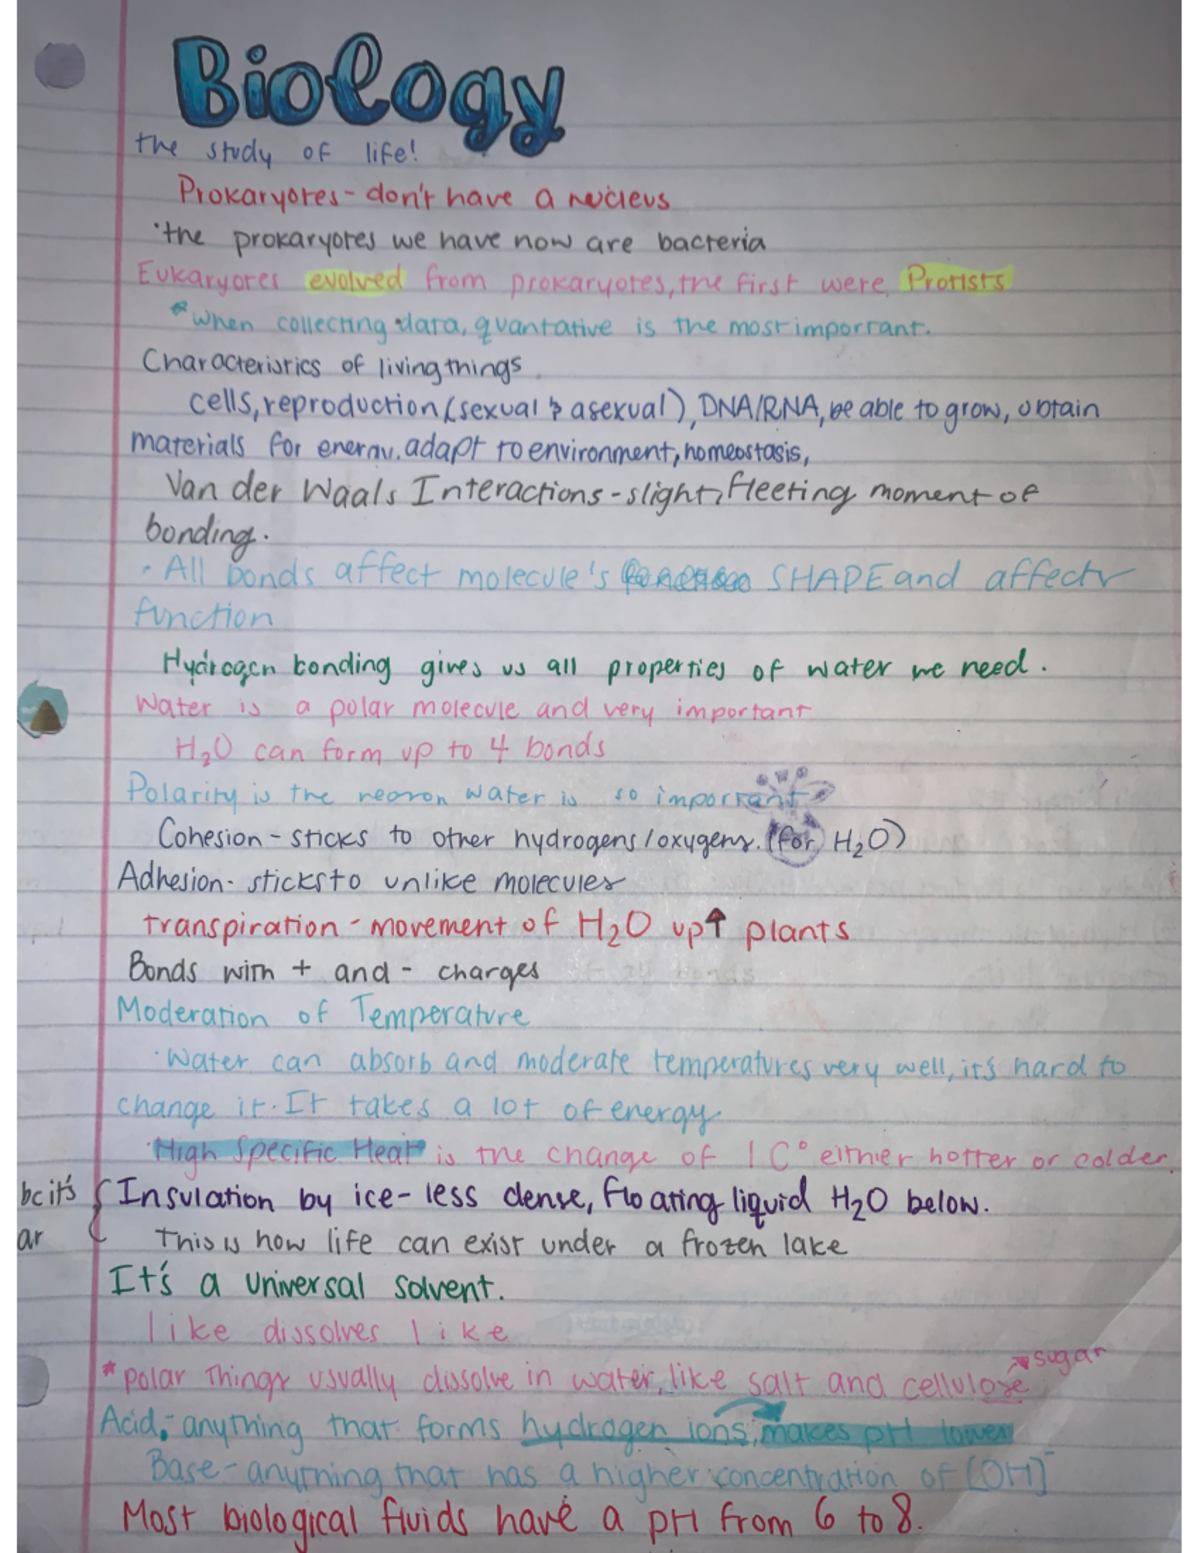 Biology
the study of life!
Prokaryotes - don't have a nucleus
·the prokaryotes we have now are bacteria
Eukaryotes evolved from prokaryotes, the first were Protists
*when collecting data, quantative is the most important.
Characteristics of living things
cells, reproduction (sexual & asexual), DNA/RNA, be able to grow, obtain
materials for energy, adapt to environment, homeostasis,
Van der Waals Interactions - slight, fleeting moment of
bonding.
· All bonds affect molecule's SHAPE and affects
function
Hydrogen bonding gives us all properties of water we need.
Water is a polar molecule and very important
H₂O can form up to 4 bonds
Polarity is the reason water is so important
Cohesion - sticks to other hydrogens/oxygens. (for H₂O)
Adhesion - sticks to unlike molecules
transpiration - movement of H₂O up↑ plants
Bonds with + and - charges
Moderation of Temperature
·Water can absorb and moderate temperatures very well, it's hard to
change it. It takes a lot of energy
·High Specific Heat is the change of 1 C° either hotter or colder.
bc it's { Insulation by ice - less dense, floating liquid H₂O below.
ar This is how life can exist under a frozen lake
It's a universal solvent.
like dissolves like
sugar
*polar things usually dissolve in water, like salt and cellulose
Acid - anything that forms hydrogen ions, makes pH lower
Base - anything that has a higher concentration of [OH]⁻
Most biological fluids have a pH from 6 to 8.